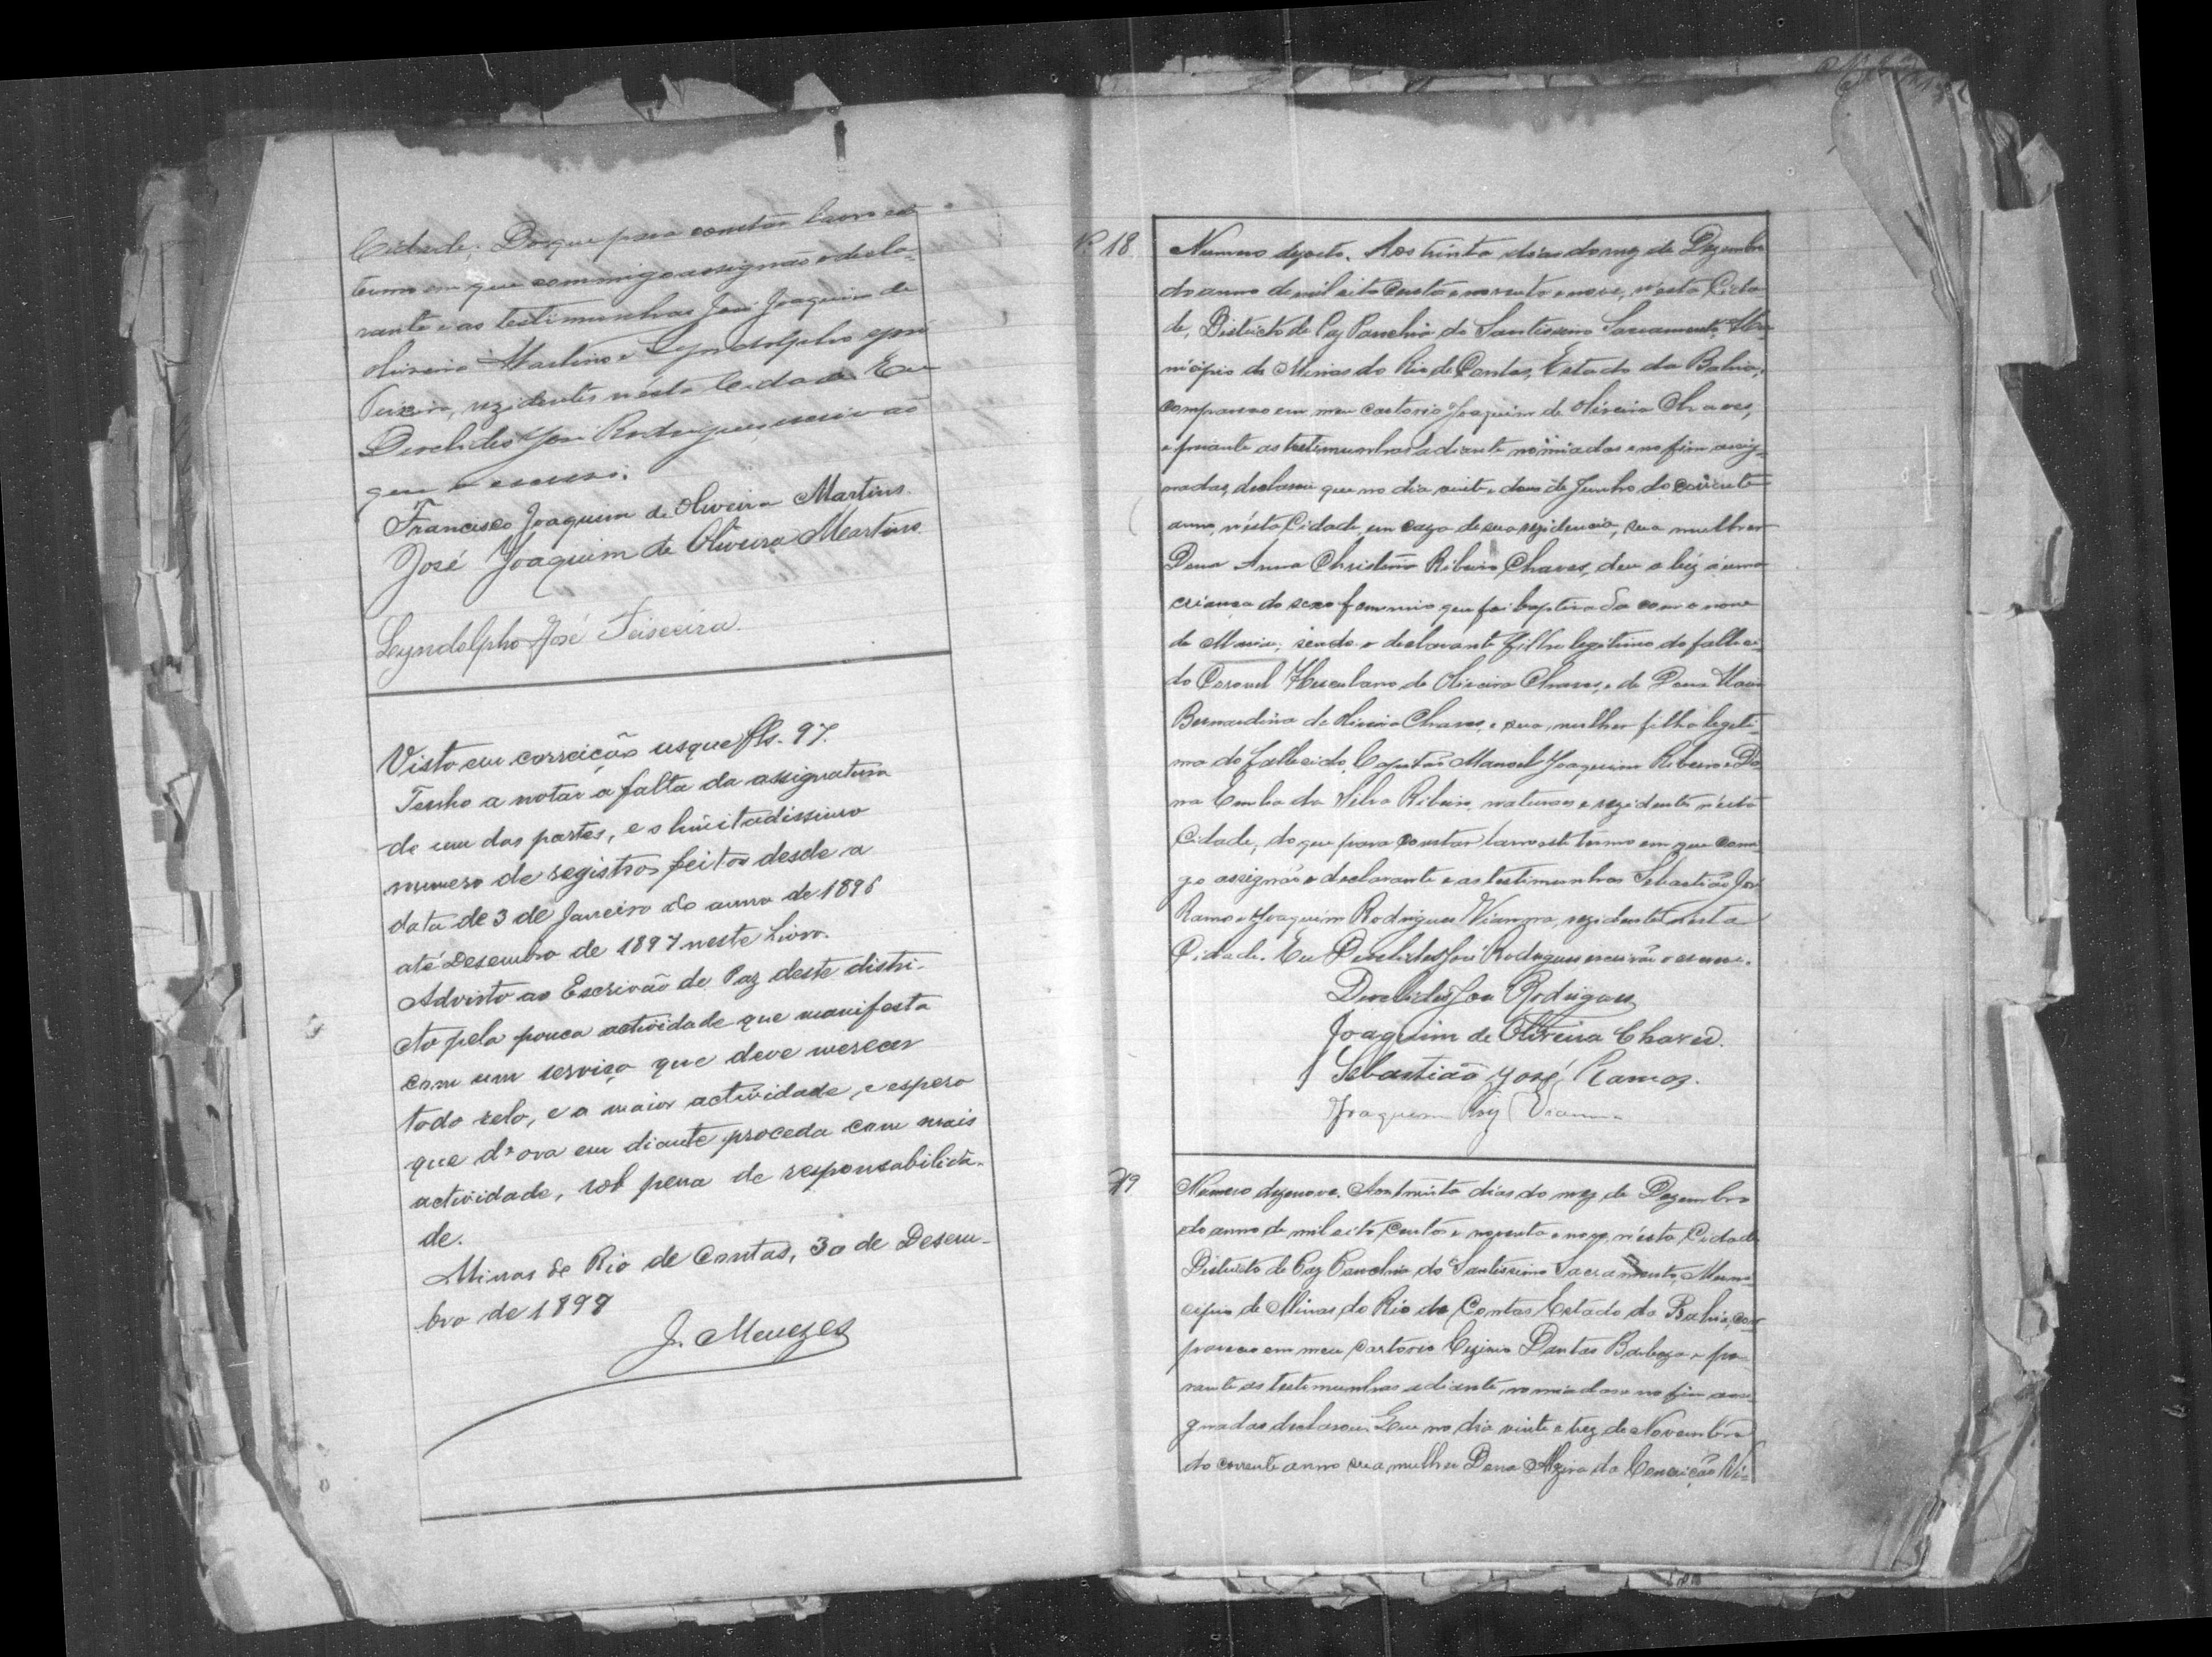 Cidade; Do que para constar lavro este
termo em que commigo assignão o decla-
rante e as testimunhas José Joaquim de
Oliveira Martins e Lyndolpho José
Teixeira, rezidentes nésta Cidade. Eu
Dirclides José Rodrigues, escrivão
que o escrevi.
Francisco Joaquim de Oliveira Martins
José Joaquim de Oliveira Martins
Lyndolpho José Teixeira.
Visto em correição usque fls. 97.
Tenho a notar a falta da assignatura
de um das partes, e o limitadissimo
numero de registros feitos desde a
data de 3 de Janeiro do anno de 1896
até Desembro de 1897 neste Livro.
Advirto ao Escrivão de Paz deste distri-
cto pela pouca actividade que manifesta
com um serviço que deve merecer
todo zelo, e a maior actividade, e espero
que d'ora em diante proceda com mais
actividade, sob pena de responsabilida-
de.
Minas do Rio de Contas, 30 de Desem-
bro de 1898
J. Menezes
Nº 18
Numero dezoito. Aos trinta dias do mez de Dezembro
do anno de mil oito centos e noventa e nove, n'ésta Cida-
de, Districto de Paz Parochia do Santissimo Sacramento, Mu-
nicipio de Minas do Rio de Contas, Estado da Bahia,
compareceo em meu cartorio Joaquim de Oliveira Chaves,
e perante as testimunhas adiante nomiadas e no fim assig-
nadas, declarou que no dia vinte e dous de Junho do corrente
anno, n'ésta Cidade, em caza de sua rezidencia, sua mulher
Dona Anna Christina Ribeiro Chaves, deu a luz á uma
criança do sexo feminino que foi baptizada com o nome
de Maria; sendo o declarante filho legitimo do falleci-
do Coronel Herculano de Oliveira Chaves, e de Dona Maria
Bernardina de Oliveira Chaves, e sua mulher filha legiti-
ma do fallecido Capitão Manoel Joaquim Ribeiro e Do-
na da Silva Ribeiro, naturaes e rezidentes n'ésta
Cidade, do que para constar lavro este termo em que comi-
go assignão o declarante e as testimunhas Sebastião José
Ramos e Joaquim Rodrigues Vianna, rezidentes nésta
Cidade. Eu Dirclides José Rodrigues escrivão o escrevi.
Dirclides José Rodrigues
Joaquim de Oliveira Chaves.
Sebastião José Ramos.
Joaquim Roiz Vianna
19
Numero dezenove. Aos trinta dias do mez de Dezembro
do anno de mil oito centos e noventa e nove, n'ésta Cidade
Districto de Paz Parochia do Santissimo Sacramento, Muni-
cipio de Minas do Rio de Contas Estado da Bahia, com-
pareceo em meu cartorio Dantas Barboza e pe-
rante as testimunhas adiante nomiadas e no fim assi-
gnadas declarou Que no dia vinte e trez de Novembro
do corrente anno sua mulher Dona Alzira da Conceição